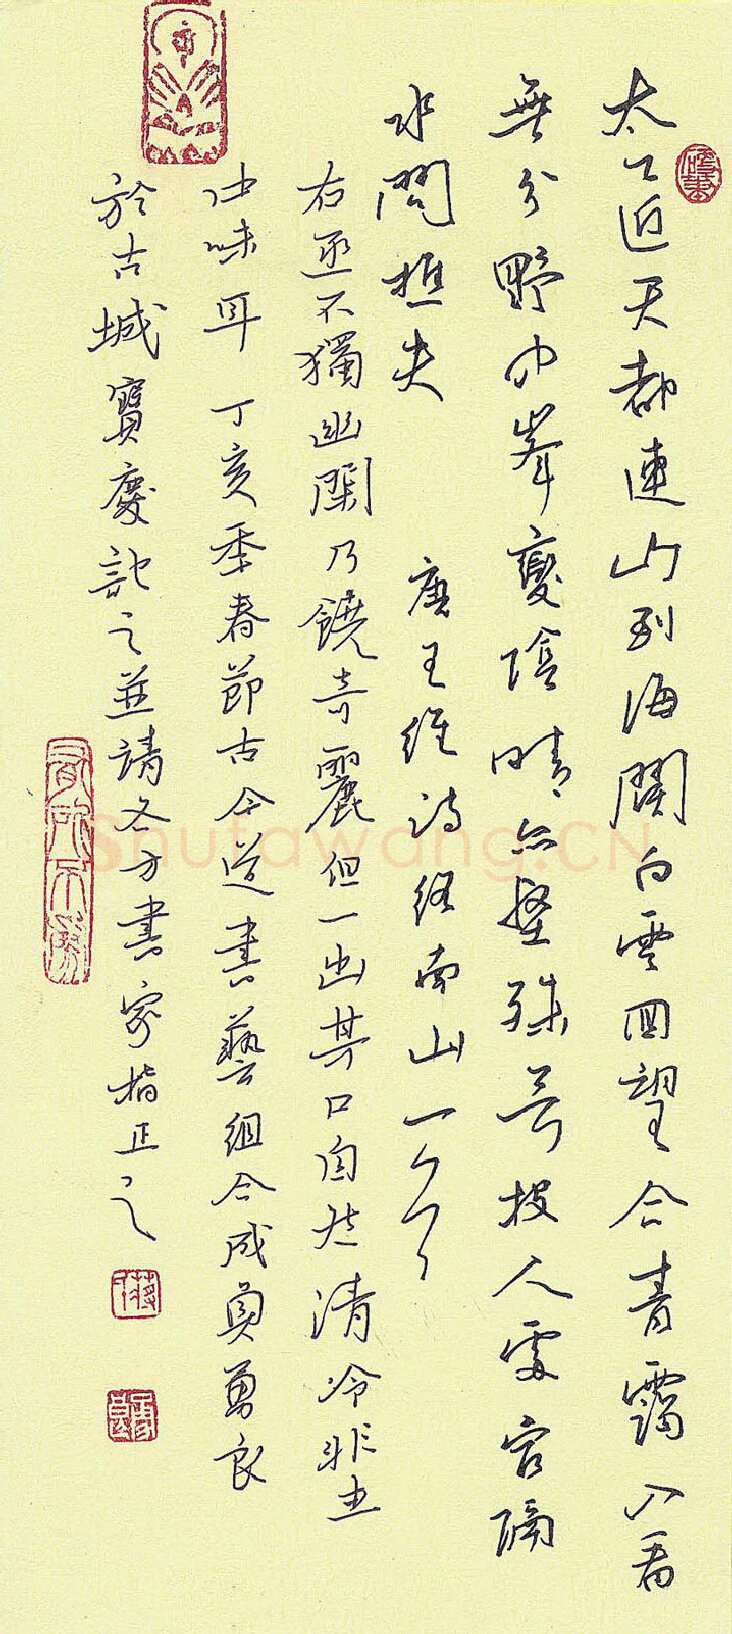 太乙近天都連山到海隅白雲回望合青靄入看
無分野中峯變陰晴衆壑殊投人處宿隔
水問樵夫 唐王維詩終南山一首
右丞不獨幽閑乃饒奇麗但一出其口自然清冷非世
中味耳 丁亥季春節古今道書藝組合成員勇良
於古城寶慶記之並請各方書家指正之
有所不為
蔣
勇良
Shufawang.CN